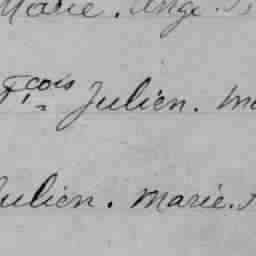 Marie. Ange.
Fçois Julien. M
Julien. Marie.